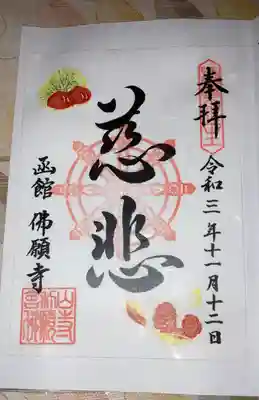 奉拝
令和三年十一月十二日
慈悲
函館 佛願寺